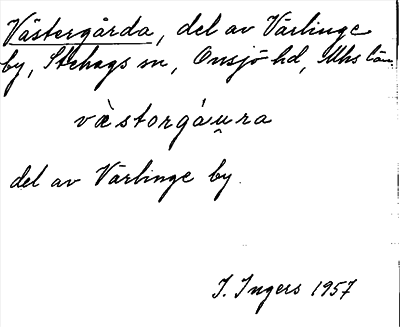 Västergårda, del av Värlinge
by, Strhags sn, Onsjö hd, Mhs län.
væ̀storgáu̯ra
del av Värlinge by.
I. Ingers 1957